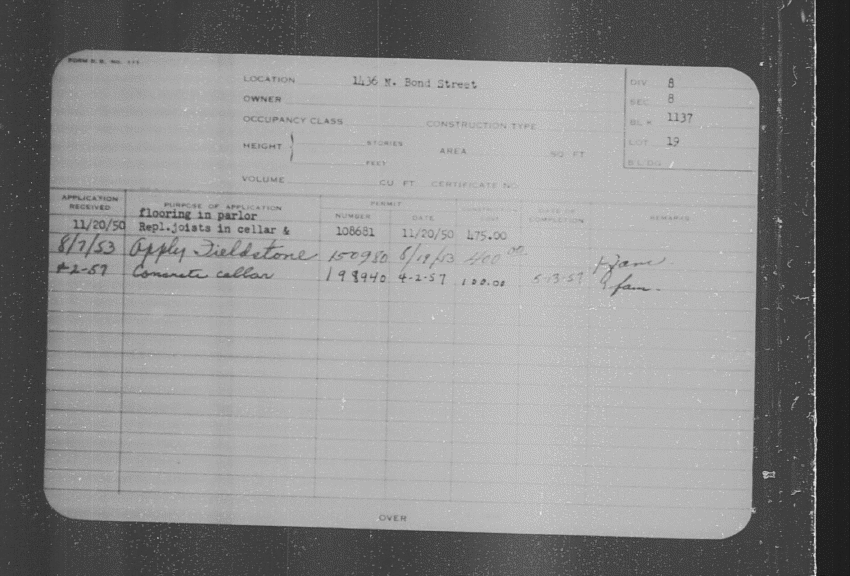 FORM B. B. NO. 111
LOCATION 1436 N. Bond Street
OWNER
OCCUPANCY CLASS CONSTRUCTION TYPE
HEIGHT STORIES
FEET
AREA SQ FT
VOLUME CU FT. CERTIFICATE NO
DIV 8
SEC 8
BLK 1137
LOT 19
BLDG
APPLICATION RECEIVED PURPOSE OF APPLICATION PERMIT NUMBER DATE COST DATE OF COMPLETION REMARKS
flooring in parlor
11/20/50 Repl.joists in cellar & 108681 11/20/50 475.00
8/7/53 Apply Fieldstone 150980 8/19/53 400 00
4-2-57 Concrete cellar 198940 4-2-57 100.00 5-13-57 fam.
OVER